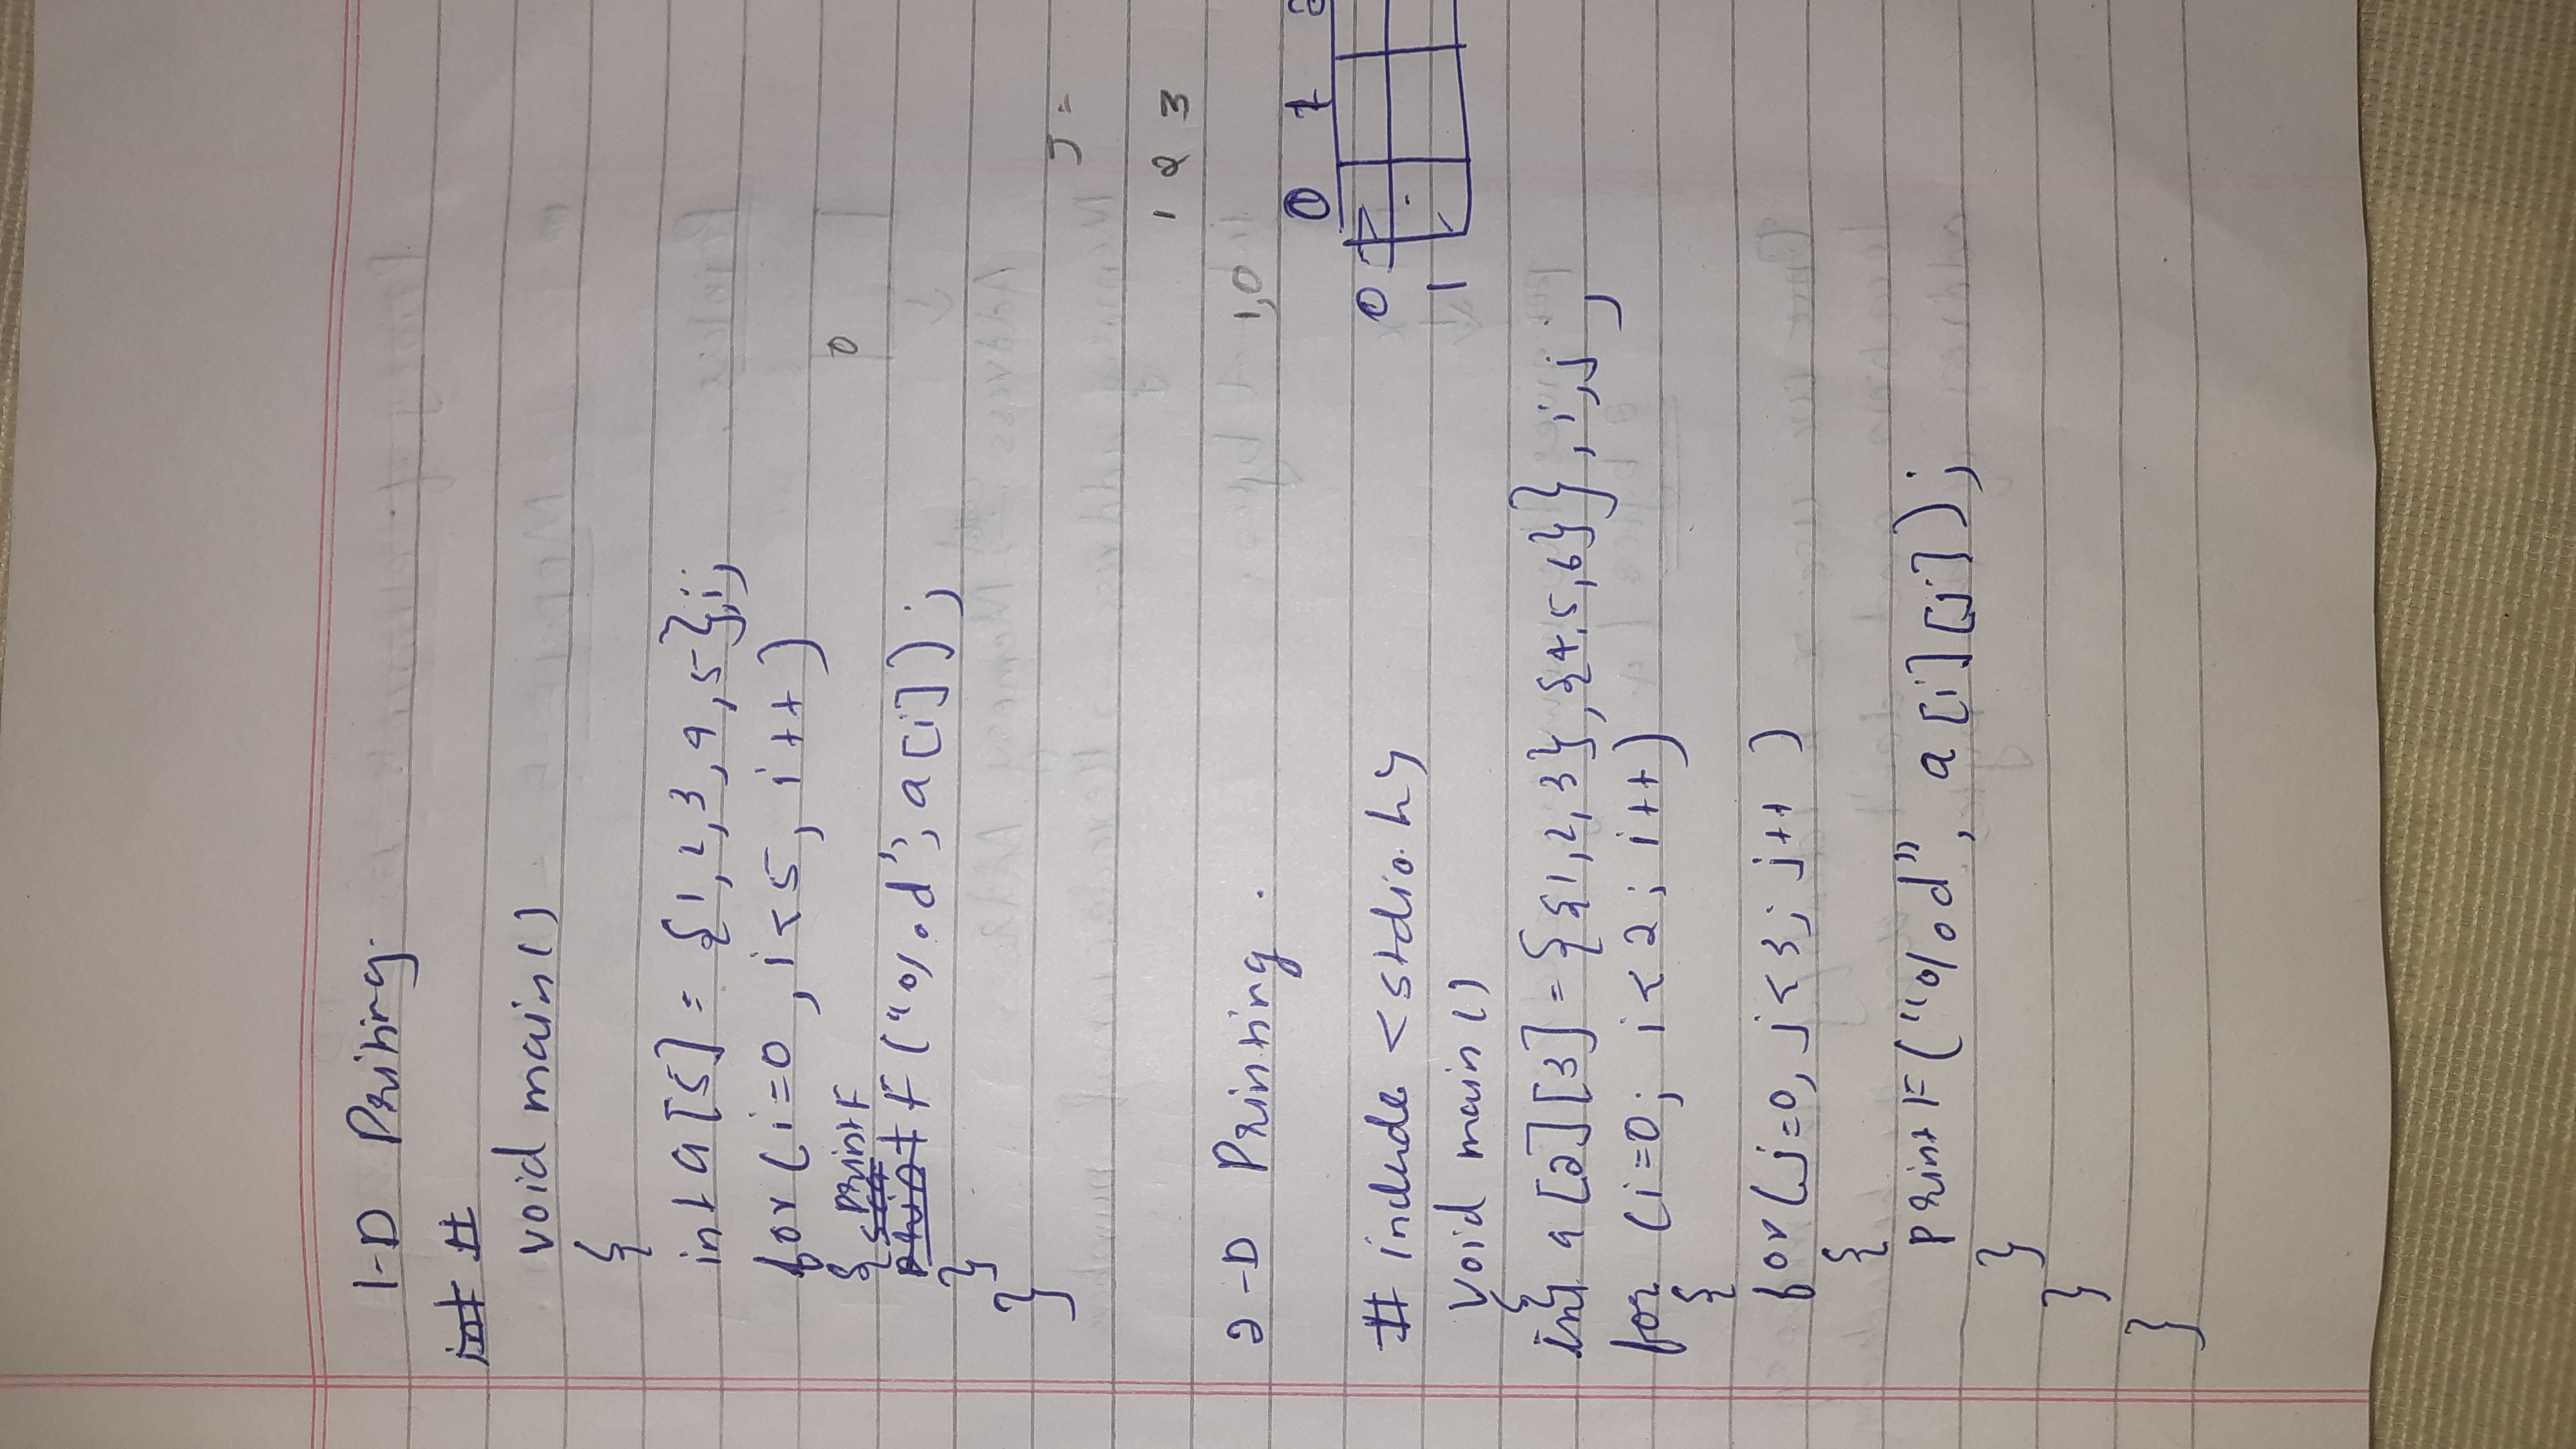 1-D Priting.
int #
void main()
{
int a[5] = {1,2,3,4,5},i;
for(i=0, i<5, i++)
{ printF
F("%d", a[i]);
}
}
J =
1 2 3
2-D Printing.
1,0
0 1 2
# include <stdio.h>
0
void main()
1
{
int a[2][3] = {{1,2,3},{4,5,6}}, i,j;
for (i=0; i<2; i++)
{
for(j=0, j<3; j++)
{
printF("%d", a[i][j]);
}
}
}